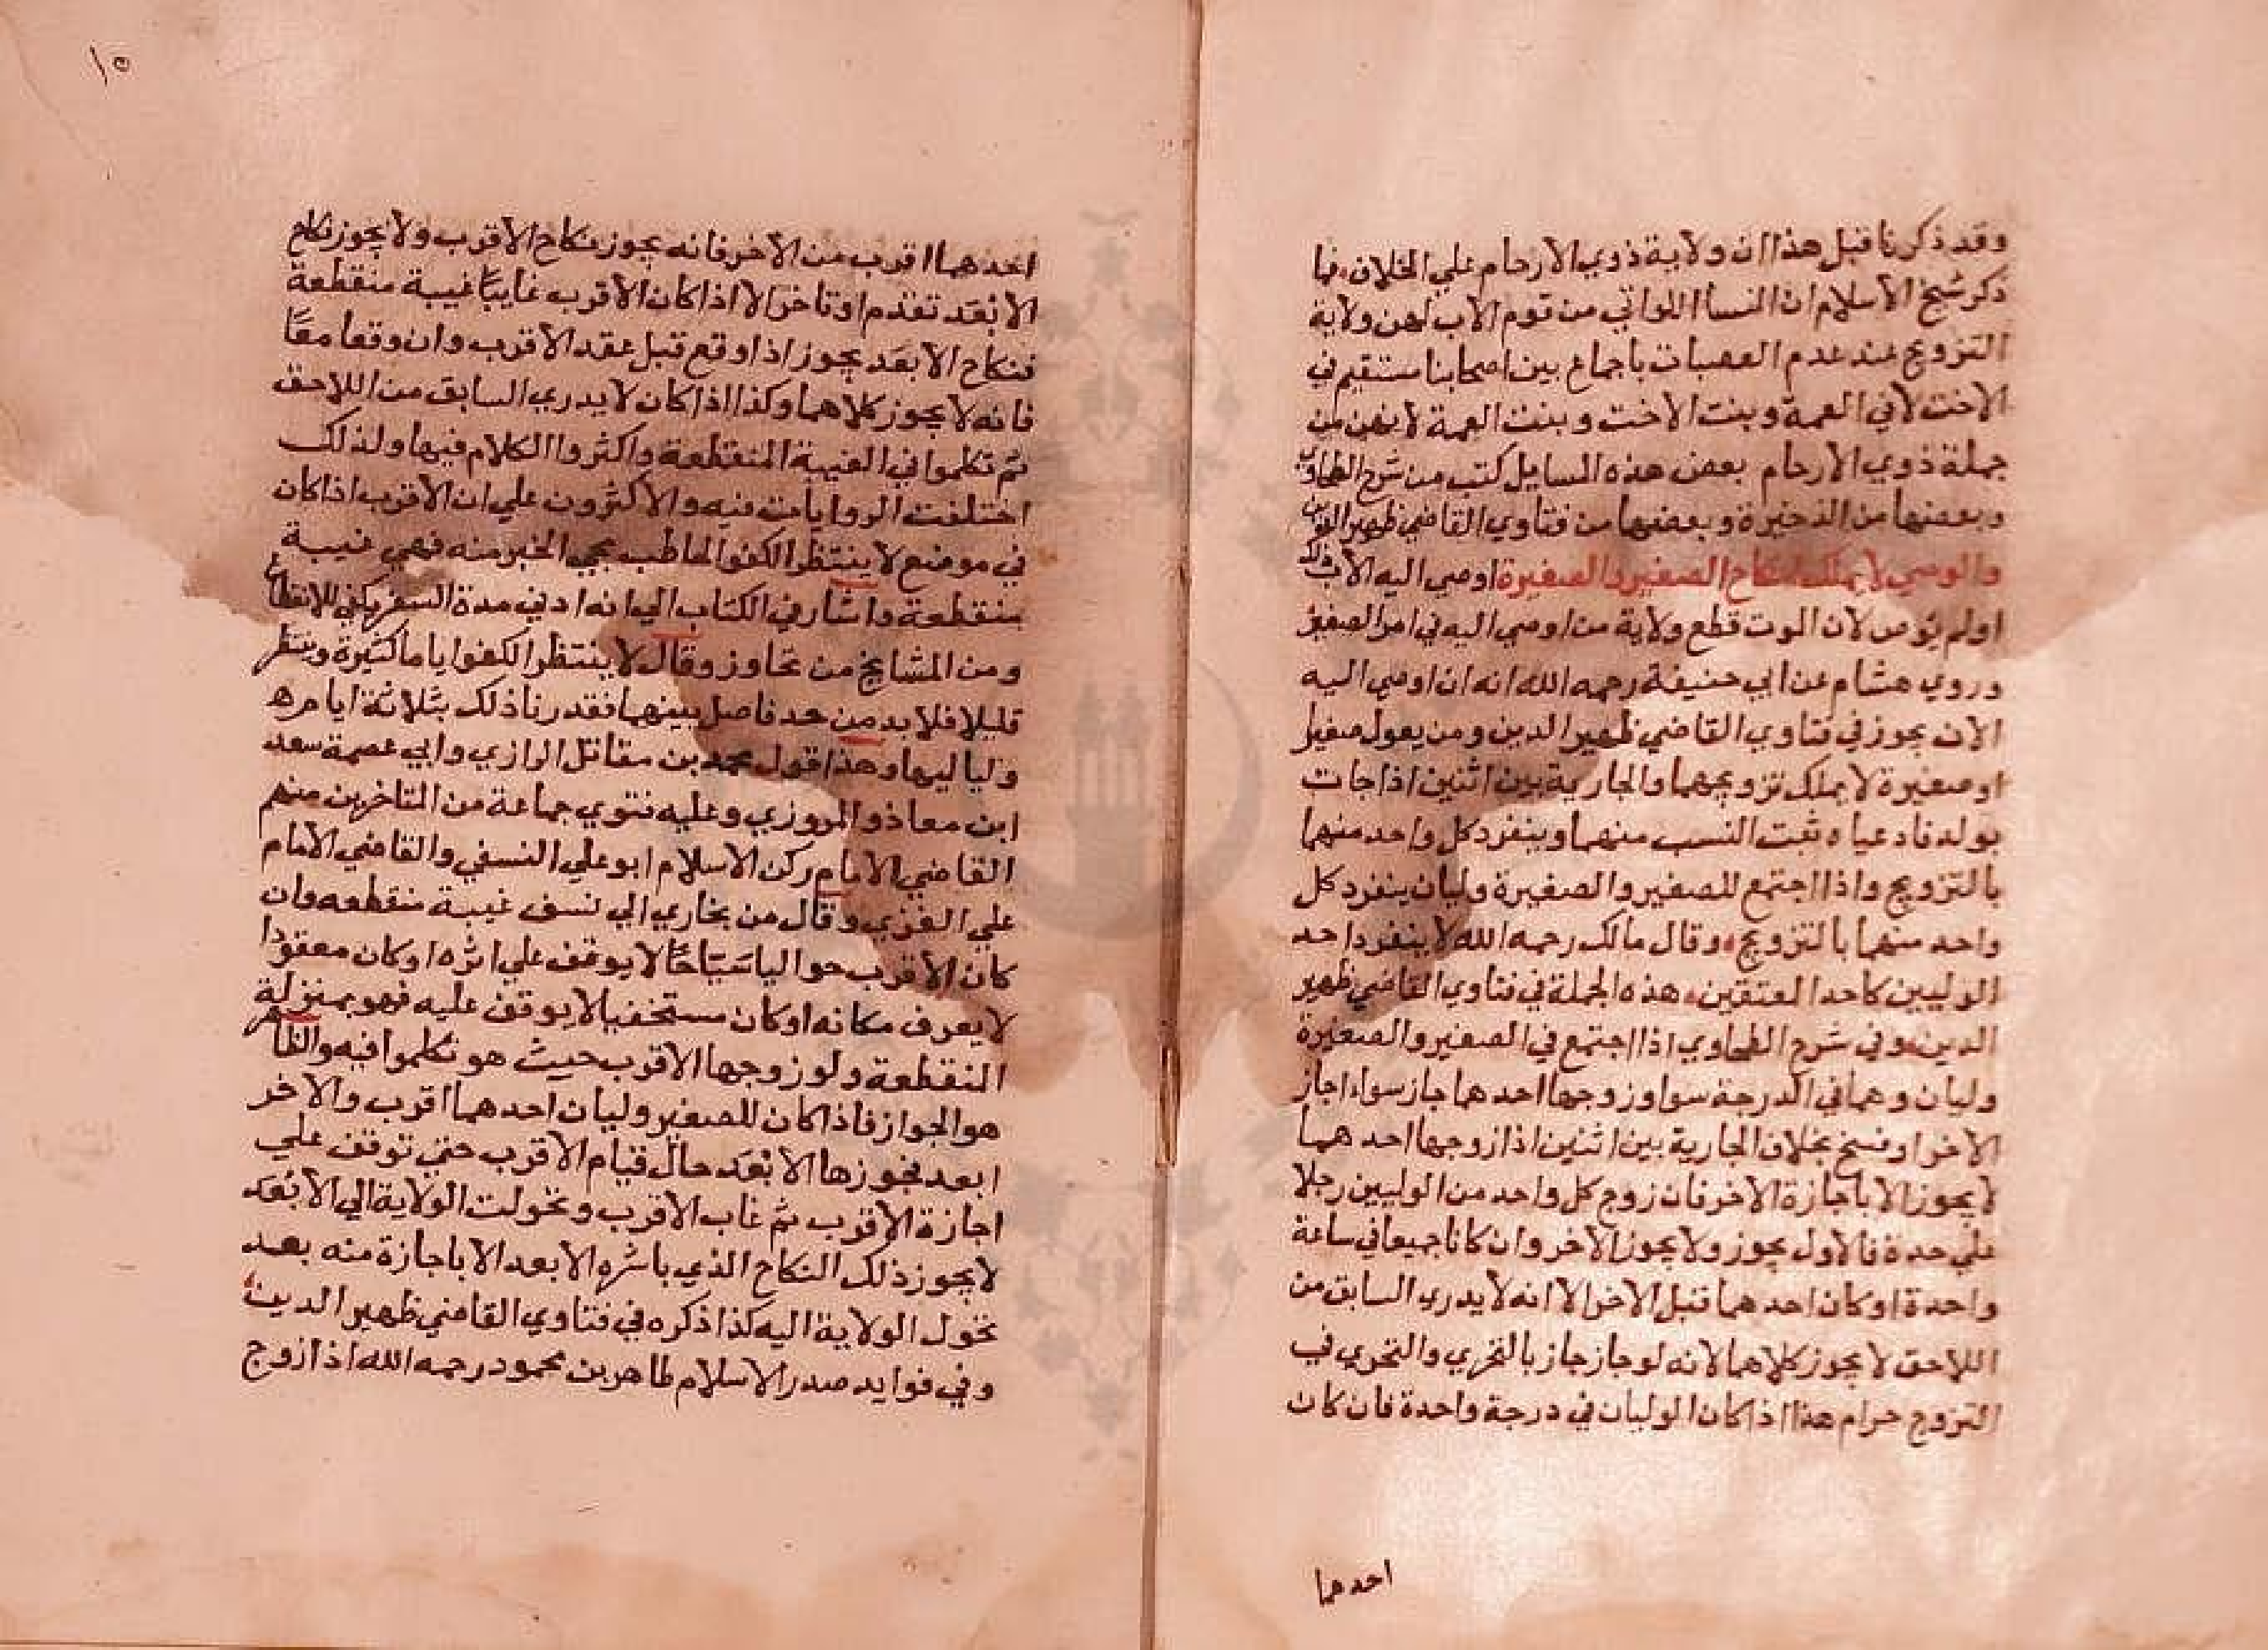 وقد ذكرنا قبل هذا ان ولاية ذوي الارحام علي الخلاف فما
ذكر شيخ الاسلام ان النسا اللواتي من قوم الاب لهن ولاية
التزويج عند عدم العصبات باجماع بين اصحابنا مستقيم في
الاخت لا في العمة وبنت الاخت وبنت العمة لانهن من
جملة ذوي الارحام بعض هذه المسايل كتب من شرح الطحاوي
وبعضها من الذخيرة وبعضها من فتاوي القاضي ظهير الدين
والوصي لا يملك انكاح الصغير والصغيرة اوصي اليه الاب ذلك
او لم يوص لان الموت قطع ولاية من اوصي اليه في امر الصغير
وروي هشام عن ابي حنيفة رحمه الله انه ان اوصي اليه
الاب يجوز في فتاوي القاضي ظهير الدين ومن يعول صغيرا
او صغيرة لا يملك تزويجهما والجارية بين اثنين اذا جات
بولد فادعياه ثبت النسب منهما وينفرد كل واحد منهما
بالتزويج واذا اجتمع للصغير والصغيرة وليان ينفرد كل
واحد منهما بالتزويج وقال مالك رحمه الله لا ينفرد احد
الوليين كاحد المعتقين هذه الجملة في فتاوي القاضي ظهير
الدين وفي شرح الطحاوي اذا اجتمع في الصغير والصغيرة
وليان وهما في الدرجة سوا وزوجها احدهما جاز سواء اجاز
الاخر او فسخ بخلاف الجارية بين اثنين اذا زوجها احدهما
لا يجوز الا باجازة الاخر فان زوج كل واحد من الوليين رجلا
علي حدة فالاول يجوز ولا يجوز الاخر وان كانا جميعا في ساعة
واحدة او كان احدهما قبل الاخر الا انه لا يدري السابق من
اللاحق لا يجوز كلاهما لانه لو جاز جاز بالتحري والتحري في
التزوج حرام هذا اذا كان الوليان في درجة واحدة فان كان
احدهما
١٥
احدهما اقرب من الاخر فانه يجوز نكاح الاقرب ولا يجوز نكاح
الابعد تقدم او تاخر الا اذا كان الاقرب غايبا غيبة منقطعة
فنكاح الابعد يجوز اذا وقع قبل عقد الاقرب وان وقعا معا
فانه لا يجوز كلاهما وكذا اذا كان لا يدري السابق من اللاحق
ثم تكلموا في الغيبة المنقطعة واكثروا الكلام فيها ولذلك
اختلفت الروايات فيه والاكثرون علي ان الاقرب اذا كان
في موضع لا ينتظر الكفو الخاطب بمجي الخبر منه فهي غيبة
منقطعة واشار في الكتاب الي انه ادني مدة السفر يكفي للانقطاع
ومن المشايخ من تجاوز وقال لا ينتظر الكفو اياما كثيرة وينتظر
قليلا فلا بد من حد فاصل بينهما فقدرنا ذلك بثلاثة ايام
ولياليها وهذا قول محمد بن مقاتل الرازي وابي عصمة سعد
ابن معاذ والمروزي وعليه فتوي جماعة من المتاخرين منهم
القاضي الامام ركن الاسلام ابو علي النسفي والقاضي الامام
علي السغدي وقال من بخاري الي نسف غيبة منقطعه وان
كان الاقرب حواليا سياحا لا يوقف علي اثره او كان مفقودا
لا يعرف مكانه او كان مستخفيا لا يوقف عليه فهو بمنزلة
المنقطعة ولو زوجها الاقرب حيث هو تكلموا فيه والظاهر
هو الجواز فاذا كان للصغير وليان احدهما اقرب والاخر
ابعد فزوجها الابعد حال قيام الاقرب حتي توقف علي
اجازة الاقرب ثم غاب الاقرب وتحولت الولاية الي الابعد
لا يجوز ذلك النكاح الذي باشره الابعد الا باجازة منه بعد
تحول الولاية اليه كذا ذكره في فتاوي القاضي ظهير الدين
وفي فوايد صدر الاسلام طاهر بن محمود رحمه الله اذا زوج